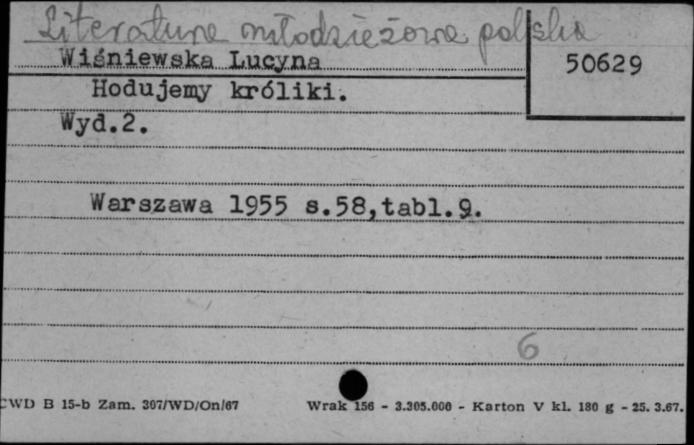 Literatura młodzieżowa polska
Wiśniewska Lucyna
50629
Hodujemy króliki.
Wyd.2.
Warszawa 1955 s.58,tabl.9.
6
CWD B 15-b Zam. 307/WD/On/67 Wrak 156 - 3.305.000 - Karton V kl. 180 g - 25. 3.67.